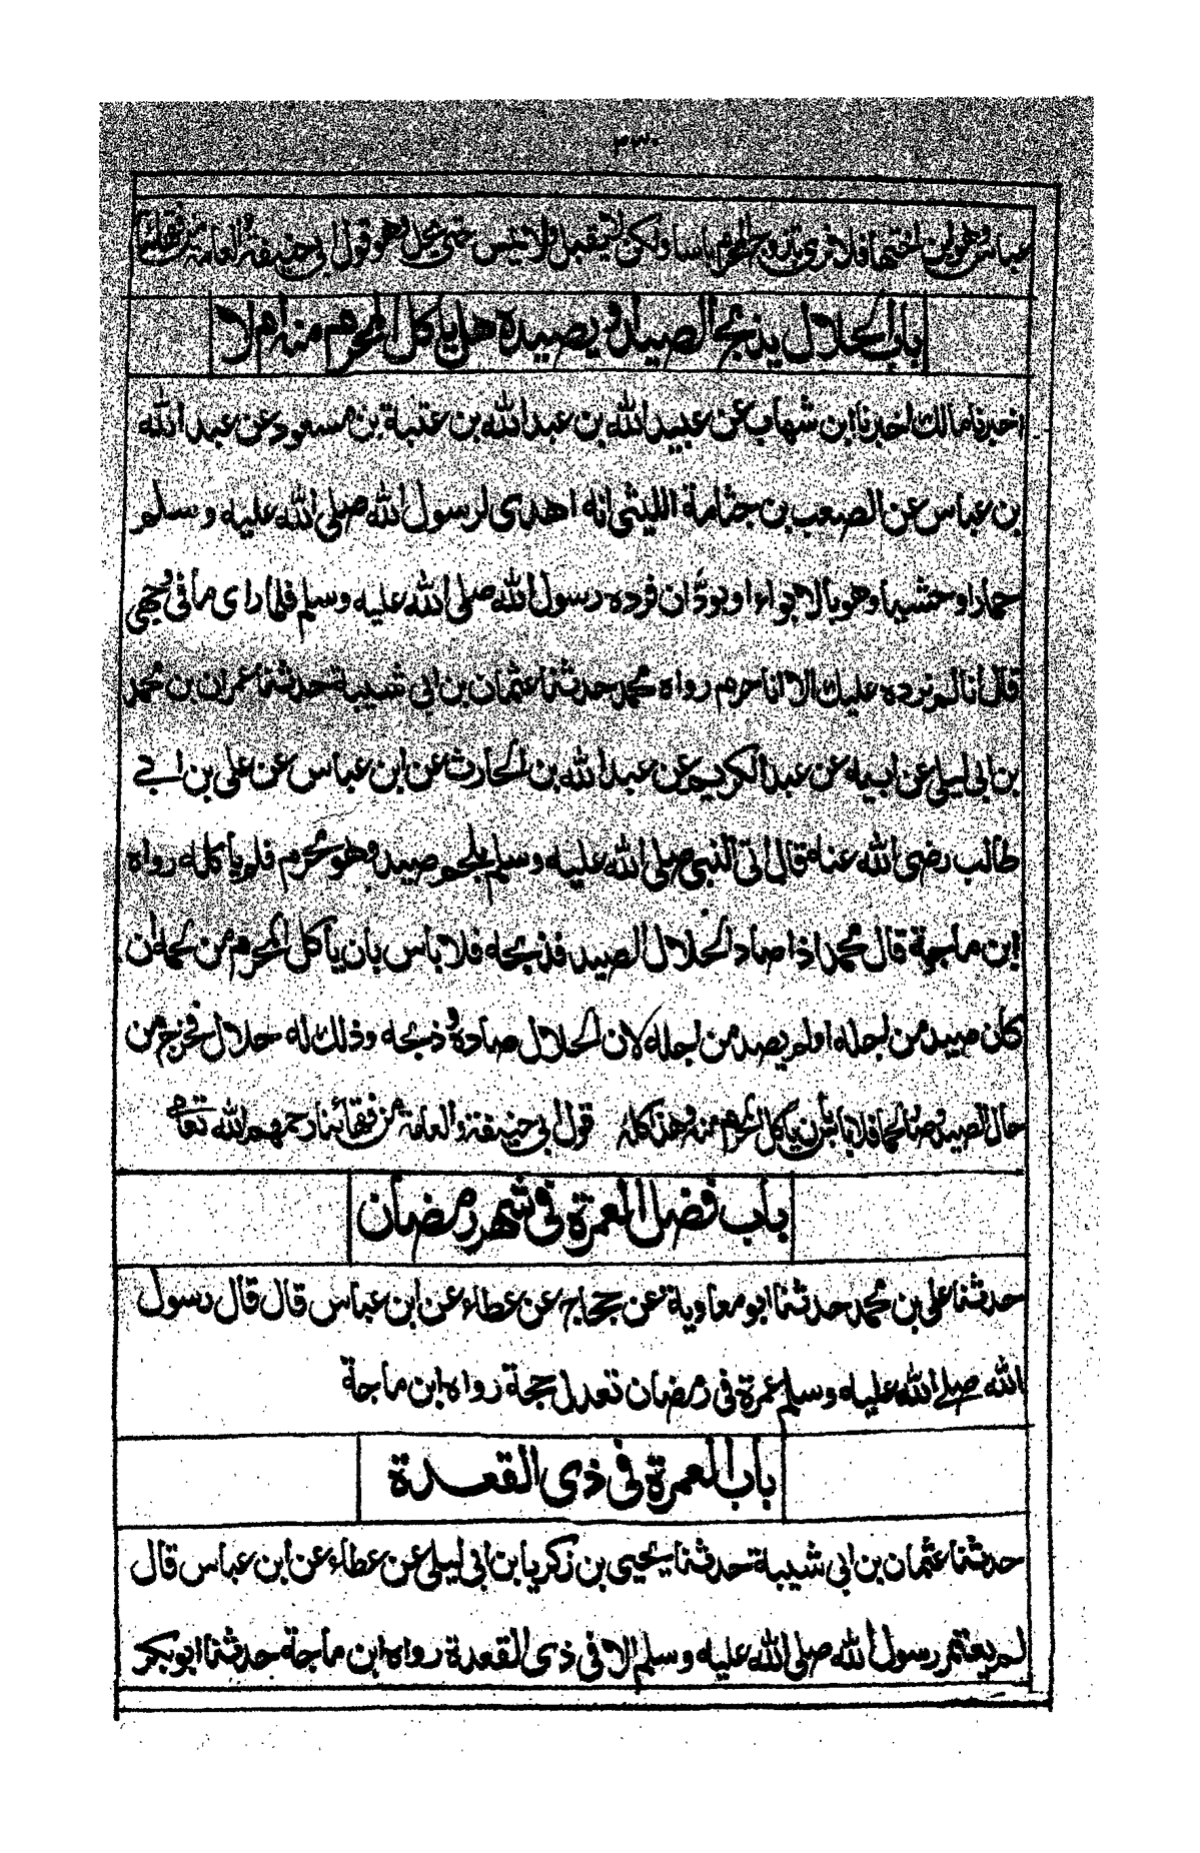 ٣٣٠
عباس وهو ابن اختها فلا نرى بتزوج المحرم باسا ولكن لا يقبل ولا يمس حتى يحل وهو قول ابي حنيفة والعامة من فقهائنا
باب الحلال يذبح الصيد او يصيده هل يأكل المحرم منه ام لا
اخبرنا مالك اخبرنا ابن شهاب عن عبيد الله بن عبد الله بن عتبة بن مسعود عن عبد الله
بن عباس عن الصعب بن جثامة الليثي انه اهدى لرسول الله صلى الله عليه وسلم
حمارا وحشيا وهو بالابواء او بودّان فرده رسول الله صلى الله عليه وسلم فلما راى ما في وجهي
قال انا لم نرده عليك الا انا حرم رواه محمد حدثنا عثمان بن ابي شيبة حدثنا عمران بن محمد
بن ابي ليلى عن ابيه عن عبد الكريم عن عبد الله بن الحارث عن ابن عباس عن علي بن ابي
طالب رضى الله عنه قال اتى النبي صلى الله عليه وسلم بلحم صيد وهو محرم فلم يأكله رواه
ابن ماجة قال محمد اذا صاد الحلال الصيد فذبحه فلا باس بان يأكل المحرم من لحمه ان
كان صيد من اجله او لم يصد من اجله لان الحلال صاده وذبحه وذلك له حلال فخرج من
حال الصيد وصار لحما فلا باس بان ياكل المحرم منه وهذا كله قول ابي حنيفة والعامة من فقهائنا رحمهم الله تعالى
باب فضل العمرة في شهر رمضان
حدثنا علي بن محمد حدثنا ابو معاوية عن حجاج عن عطاء عن ابن عباس قال قال رسول
الله صلى الله عليه وسلم عمرة في رمضان تعدل حجة رواه ابن ماجة
باب العمرة في ذى القعدة
حدثنا عثمان بن ابي شيبة حدثنا يحيى بن زكريا بن ابي ليلى عن عطاء عن ابن عباس قال
لم يعتمر رسول الله صلى الله عليه وسلم الا في ذى القعدة رواه ابن ماجة حدثنا ابو بكر